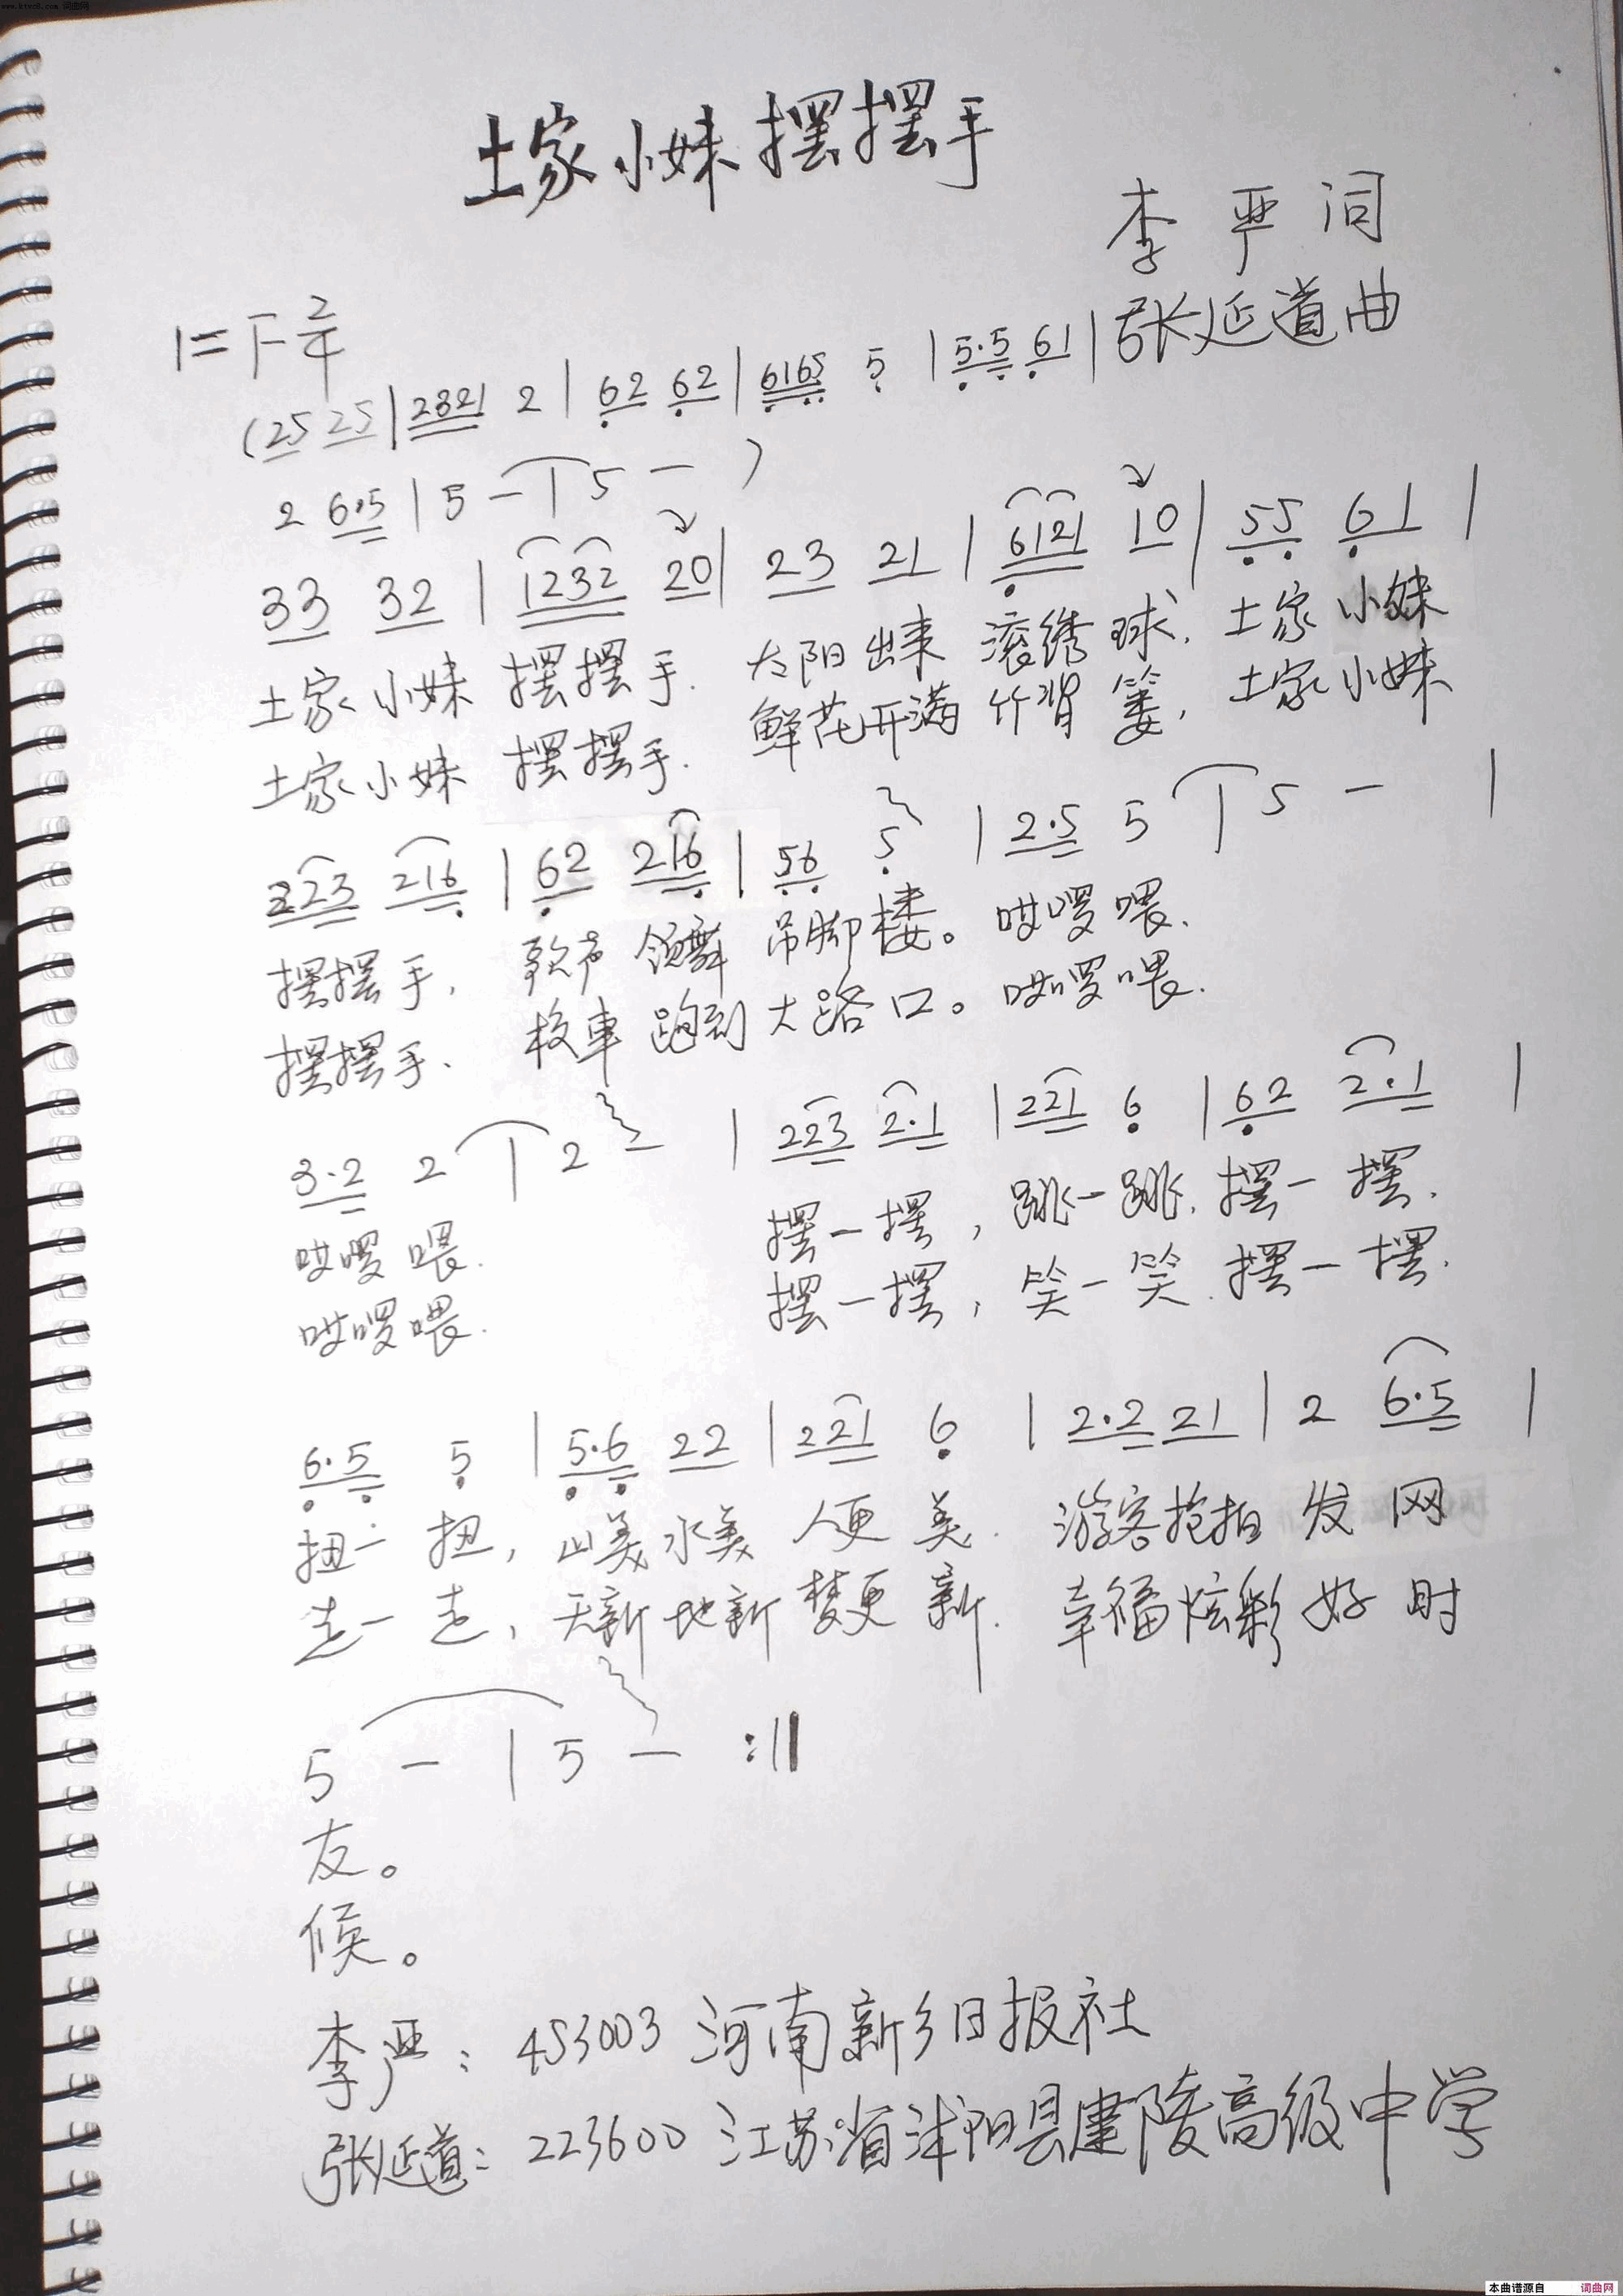 www.ktvc8.com 词曲网
土家小妹摆摆手
李严词
1=F 2/4
张延道曲
(25 25|2321 2|62 62|6165 5|5.5 61|
2 6.5|5 -|5 - )
33 32|1232 20|23 21|6121 10|55 61|
土家小妹 摆摆手. 太阳出来 滚绣球, 土家小妹
土家小妹 摆摆手. 鲜花开满 竹背篓, 土家小妹
223 216|62 216|56 5|2.5 5|5 - |
摆摆手, 歌声领舞 吊脚楼。哎啰喂.
摆摆手、 校车跑到大路口。哎啰喂.
3.2 2|2 - |223 2.1|221 6|62 2.1|
哎啰喂. 摆一摆, 跳一跳, 摆一摆.
哎啰喂. 摆一摆, 笑一笑. 摆一摆.
6.5 5|5.6 22|221 6|2.2 21|2 6.5|
扭一扭, 山美水美 人更美. 游客抢拍 发网
走一走, 天新地新 梦更新. 幸福炫彩 好时
5 -|5 - :||
友。
候。
李严: 453003 河南新乡日报社
张延道: 223600 江苏省沭阳县建陵高级中学
本曲谱源自 词曲网